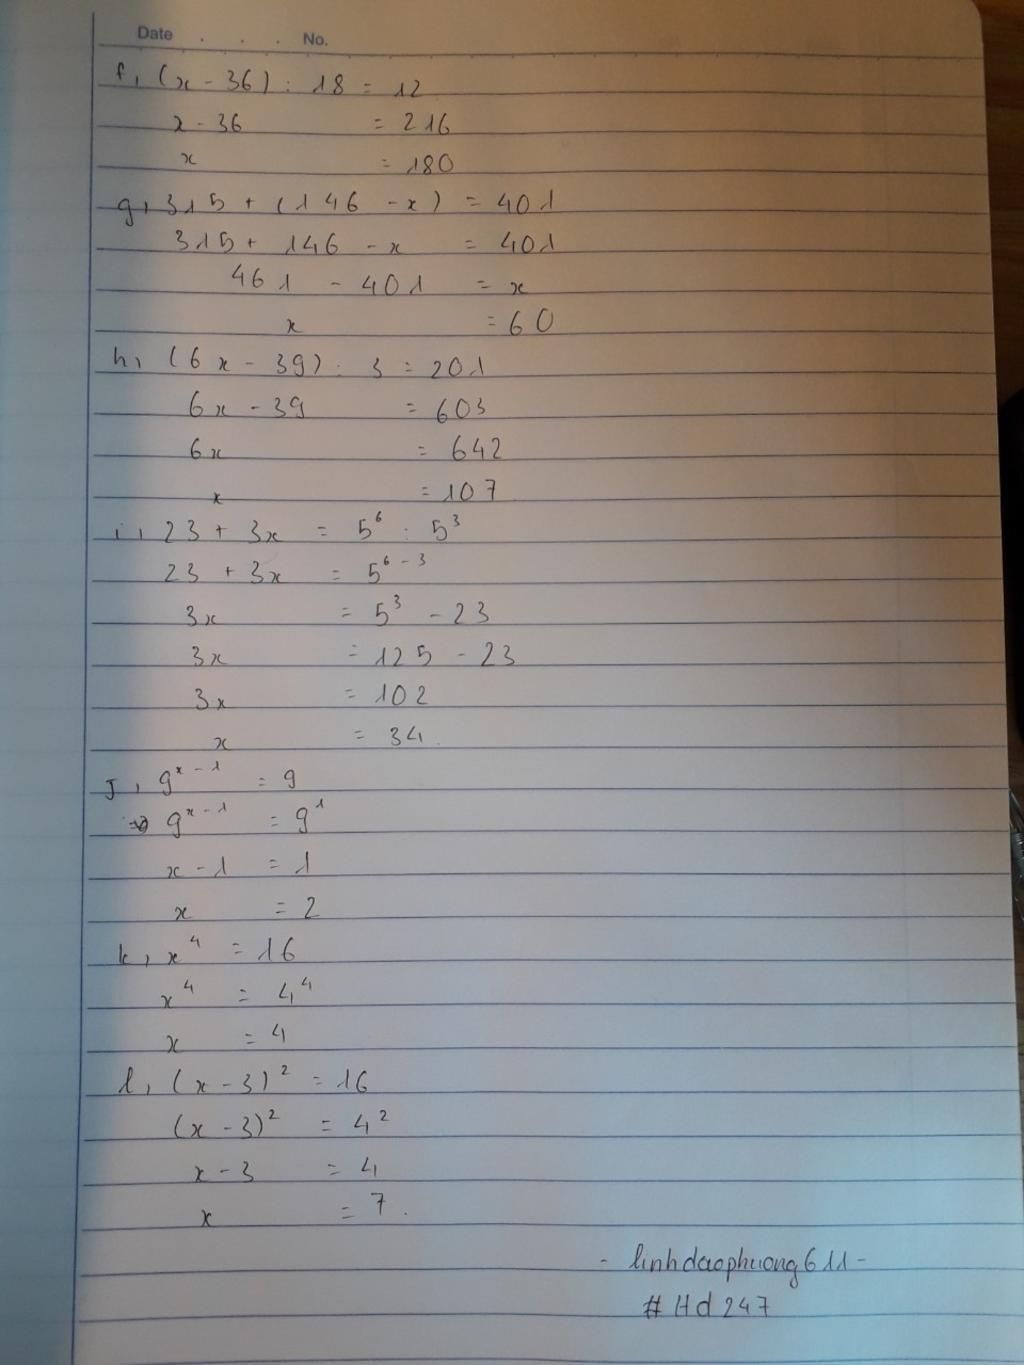 Date . . . No.
f, (x - 36) : 18 = 12
x - 36 = 216
x = 180
g, 315 + (146 - x) = 401
315 + 146 - x = 401
461 - 401 = x
x = 60
h, (6x - 39) : 3 = 201
6x - 39 = 603
6x = 642
x = 107
i, 23 + 3x = 5⁶ : 5³
23 + 3x = 5⁶⁻³
3x = 5³ - 23
3x = 125 - 23
3x = 102
x = 34.
J, 9ˣ⁻¹ = 9
=> 9ˣ⁻¹ = 9¹
x - 1 = 1
x = 2
k, x⁴ = 16
x⁴ = 4⁴
x = 4
l, (x - 3)² = 16
(x - 3)² = 4²
x - 3 = 4
x = 7.
- linhdaophuong611 -
# Hd 247